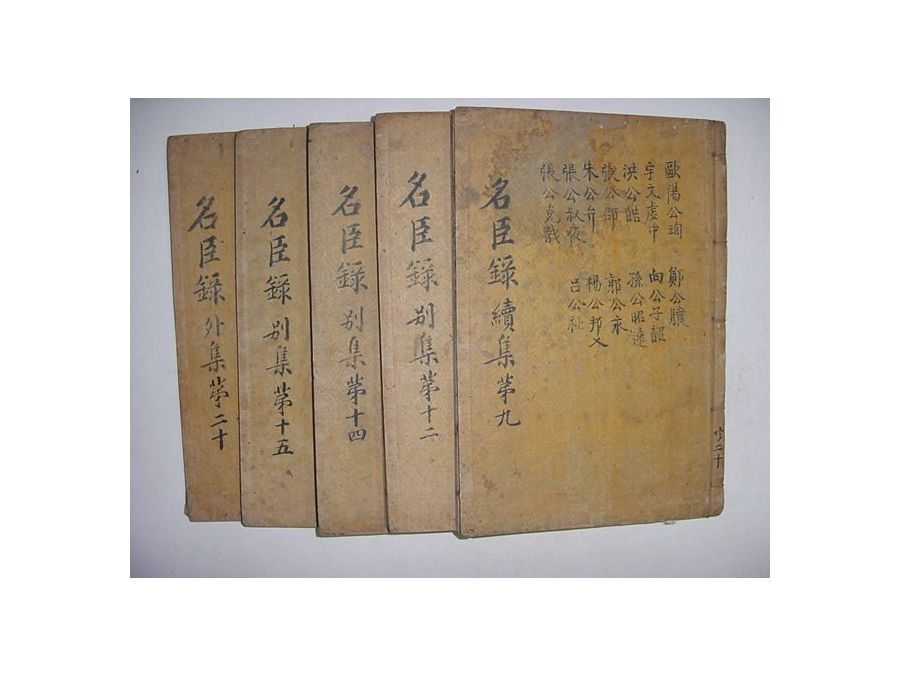 歐陽公珣 鄭公驤
宇文虛中 向公子韶
洪公皓 孫公昭遠
張公邵 郭公永
朱公弁 楊公邦乂
張公叔夜 呂公祉
張公克戩
名臣錄 續集 第九
名臣錄 別集 第十二
名臣錄 別集 第十四
名臣錄 別集 第十五
名臣錄 外集 第二十
共二十